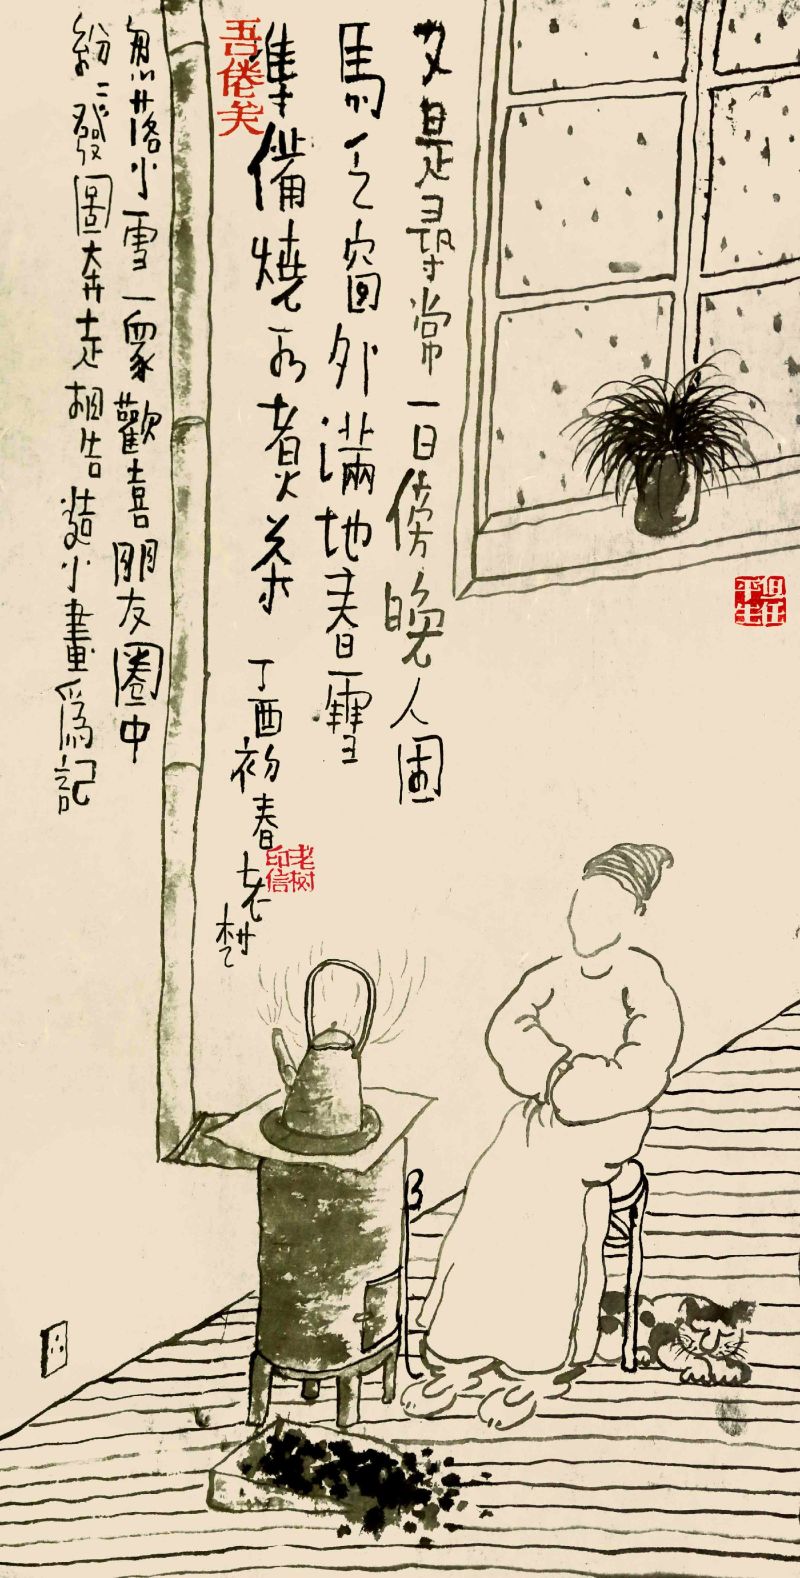 又是尋常一日傍晚人困
馬乏窗外滿地春雪
準備燒水煮茶
丁酉初春老树
吾倦矣
老树印信
落小雪一眾歡喜朋友圈中
紛〻發圖奔走相告造小畫爲記
但任平生